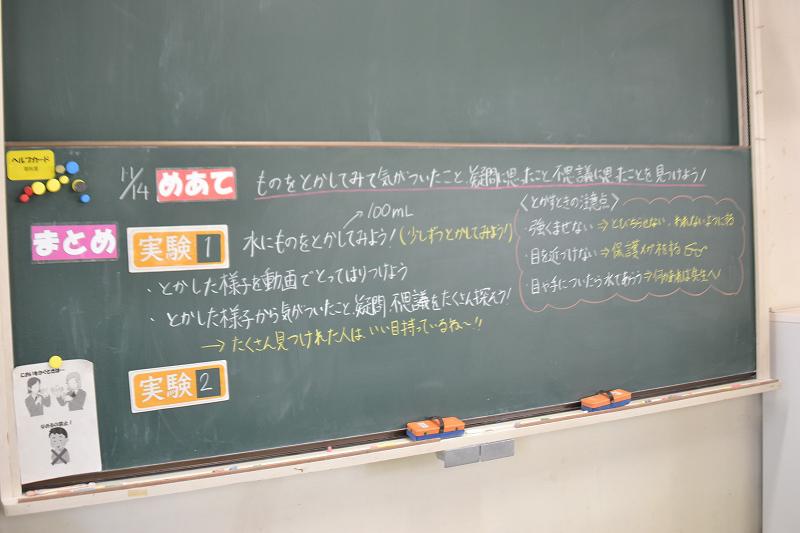 ヘルプカード
11/14 めあて ものをとかしてみて気がついたこと、疑問に思ったこと、不思議に思ったことを見つけよう!
まとめ
実験 1 水にものをとかしてみよう!(少しずつとかしてみよう!)
→100mL
・とかした様子を動画でとってはりつけよう
・とかした様子から気がついたこと、疑問、不思議をたくさん探そう!
→たくさん見つけれた人は、いい目持っているね〜!!
実験 2
〈とかすときの注意点〉
・強くまぜない ⇒ とびちらせない、われないようにする
・目を近づけない ⇒ 保護メガネをする
・目や手についたら水であらう ⇒ 何かあれば先生へ!
においをかぐときは…
なめるの禁止!